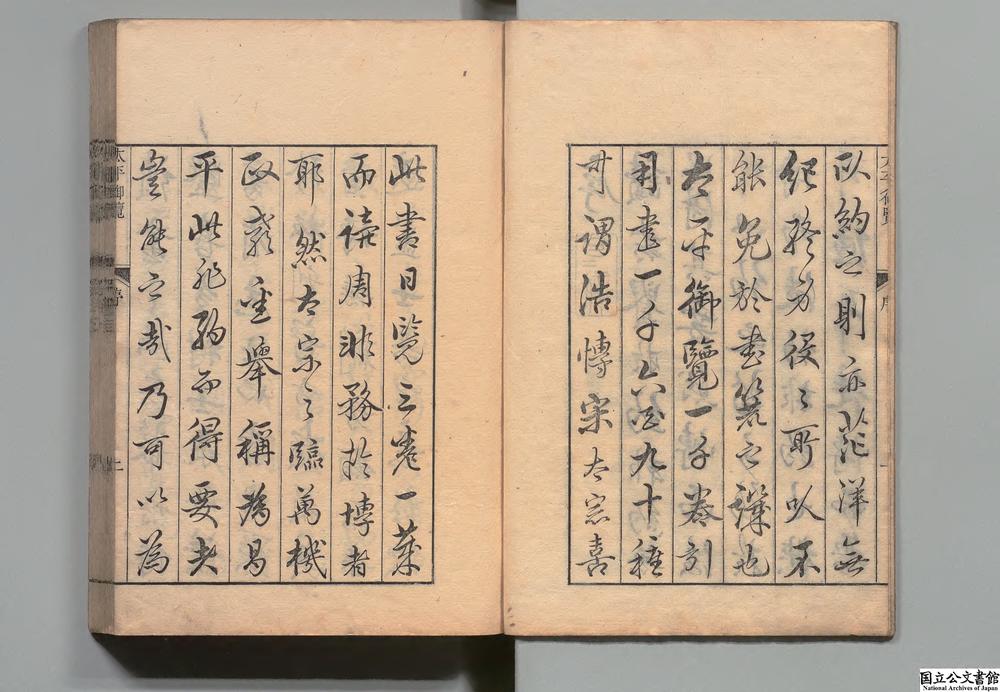 以約之則亦茫洋無
紀終身役〻所以不
能免於書簏之譏也
太平御覽一千卷引
用書一千六百九十種
可謂浩博宋太宗喜
此書日覽三卷一葉
而読周非務於博者
耶然太宗之臨萬機
政衆重舉稱為昌
平此非独而得要夫
豈能之哉乃可以為
太平御覽
序
太平御覽
序
国立公文書館
National Archives of Japan